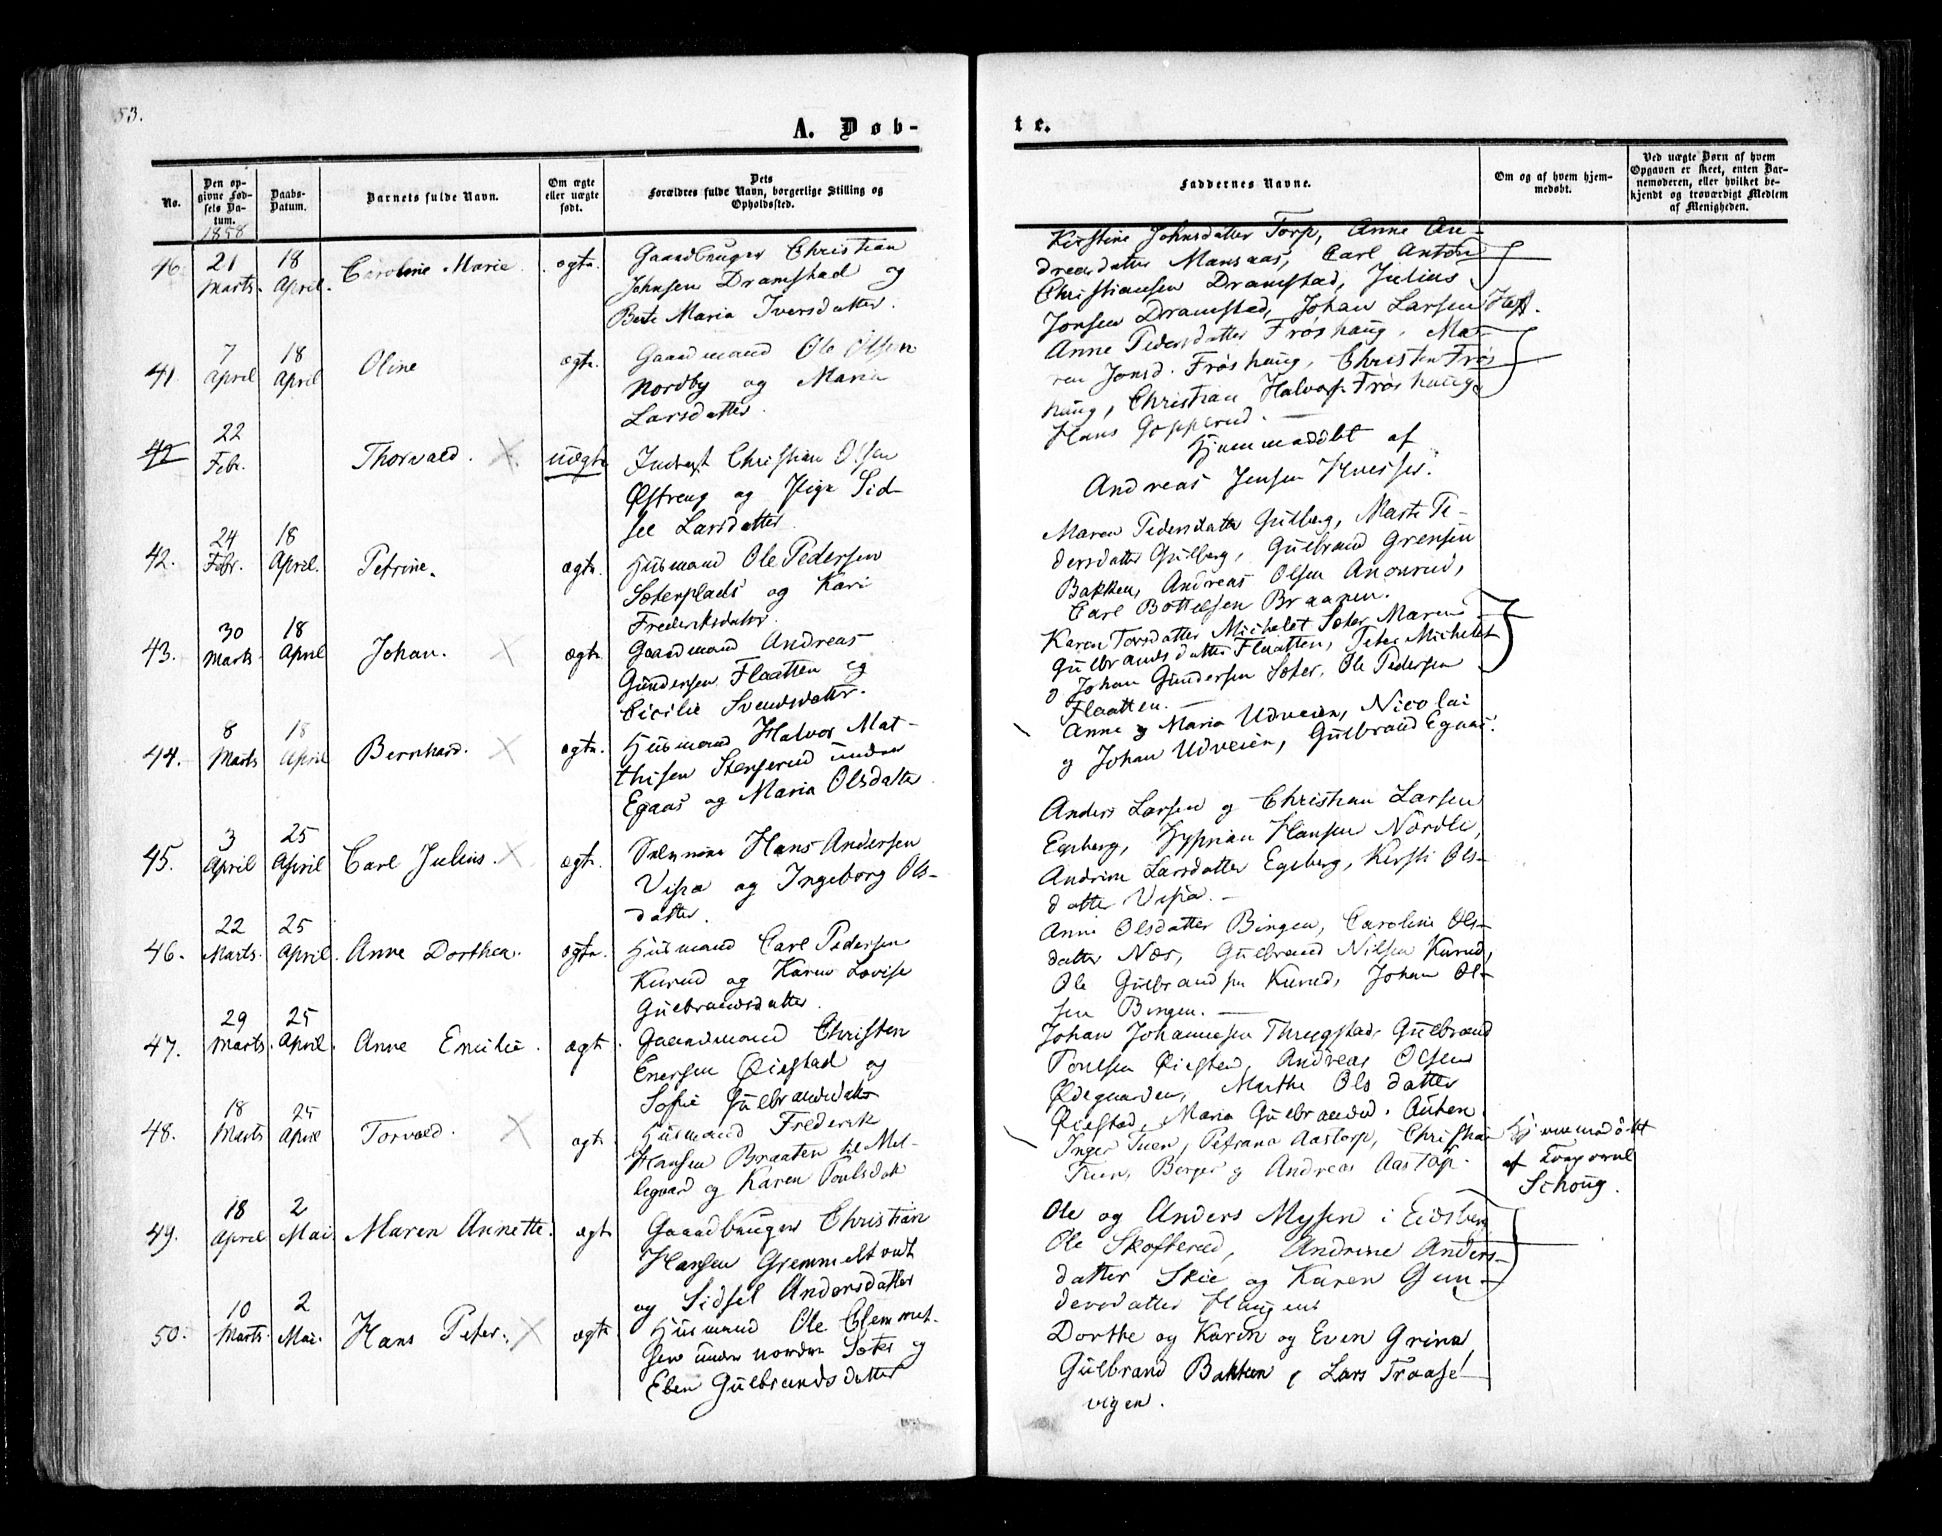 53.
A. Døb-
te.
No.
Den op-
givne Fød-
sels Da-
tum.
1858
Daabs-
Datum.
Barnets fulde Navn.
Om ægte
eller uægte
født.
Dets
Forældres fulde Navn, borgerlige Stilling og
Opholdssted.
Faddernes Navne.
Om og af hvem hjem-
medøbt.
Ved uægte Børn af hvem
Opgaven er skeet, enten Bar-
nemoderen, eller hvilket be-
kjendt og troværdigt Medlem
af Menigheden.
21 Marts. 18 April. Caroline Marie. ægte.
Gaardbruger Christian
Johnsen Dramstad og
Berte Maria Iversdatter.
Kirstine Johnsdatter Torp, Anne An-
dreasdatter Mansaas, Carl Anton
Christiansen Dramstad, Julius
Jonsen Dramstad, Johan Larsen
41. 7 April 18 April Oline ægte.
Gaardmand Ole Olsen
Nordby og Maria
Larsdatter.
Anne Pedersdatter Frøshaug, Ma-
ren Jonsd. Frøshaug, Christen Frøs
haug, Christian Halvors. Frøshaug
Hans Gopperud.
22 Febr. Thorvald. uægte
Inderst Christian Olsen
Østreng og Pige Sid-
see Larsdatter
Hjemmedøbt af
Andreas Jensen
42. 24 Febr. 18 April. Petrine. ægte.
Husmand Ole Pedersen
Sæterplads og Kari
Frederiksdatter.
Maren Pedersdatter Gulberg, Marte Pe-
dersdatter Gulberg, Gulbrand Grensen
Bakken, Andreas Olsen
Carl Bottelsen Braanen.
43. 30 Marts 18 April Johan. ægte
Gaardmand Andreas
Gundersen Flaatten og
Cicilie Svendsdatter.
Karen Torsdatter Michelet Sæter, Maren
Gulbrandsdatter Flaatten, Peter Michelet
og Johan Gundersen Sæter, Ole Pedersen
Flaatten.
44. 8 Marts 18 April Bernhard. ægte.
Husmand Halvor Mat-
thisen Stenserud under
Egaas og Maria Olsdatter
Anne og Maria Udveien, Nicolai
og Johan Udveien, Gulbrand Egaas.
45. 3 April 25 April Carl Julius. ægte.
Hans Andersen
og Ingeborg Ols-
datter.
Anders Larsen og Christian Larsen
Egeberg, Hansen
Andrine Larsdatter Egeberg, Kirsti Ols-
datter
46. 22 Marts. 25 April. Anne Dorthea. ægte.
Husmand Carl Pedersen
Kurud og Karen Lovise
Gulbrandsdatter.
Anne Olsdatter Bingen, Caroline Ols-
datter Næs, Gulbrand Nilsen Kurud,
Ole Gulbrandsen Kurud, Johan Ol-
sen Bingen.
47. 29 Marts. 25 April. Anne Emilie. ægte.
Gaardmand Christen
Enersen Øiestad og
Sofie Gulbrandsdatter
Johan Johannesen Thrygstad, Gulbrand
Poulsen Øiestad, Andreas Olsen
Ødegaarden, Marthe Olsdatter
Øiestad, Maria Gulbrandsd. Auten.
48. 18 Marts 25 April Torvald. ægte
Husmand Frederik
Hansen Braaten
og Karen Poulsdatt
Inger Tuen, Petrana Aastorp, Christian
Tuen, Berger og Andreas Aastorp.
Hjemmedøbt
af
Schoug.
49. 18 April 2 Mai Maren Annette. ægte
Gaardbruger Christian
Hansen Gremmeltvedt
og Sidsel Andersdatter
Ole og Anders Mysen i Eidsberg
Ole Skofterud, Andrine Anders-
datter Skie og Karen Gun-
dersdatter Haugene
50. 10 Marts. 2 Mai. Hans Peter. ægte
Husmand Ole Clemmet-
sen under nordre Sæter og
Eben Gulbrandsdatter
Dorthe og Karen og Even Grina,
Gulbrand Bakken, Lars Traase-
vigen.